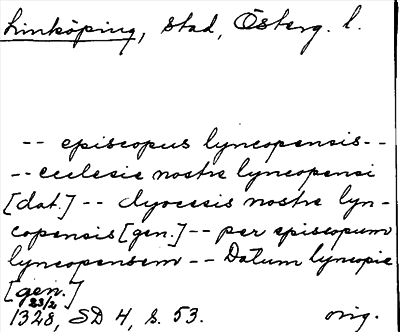 Linköping, stad, Österg. l.
-- episcopus lyncopensis--
-- ecclesie nostre lyncopensi
[dat.] -- dyocesis nostre lyn-
copensis [gen.] -- per episcopum
lyncopensem -- Datum lyncopie
[gen.]
23/2
1328, SD 4, s. 53. orig.